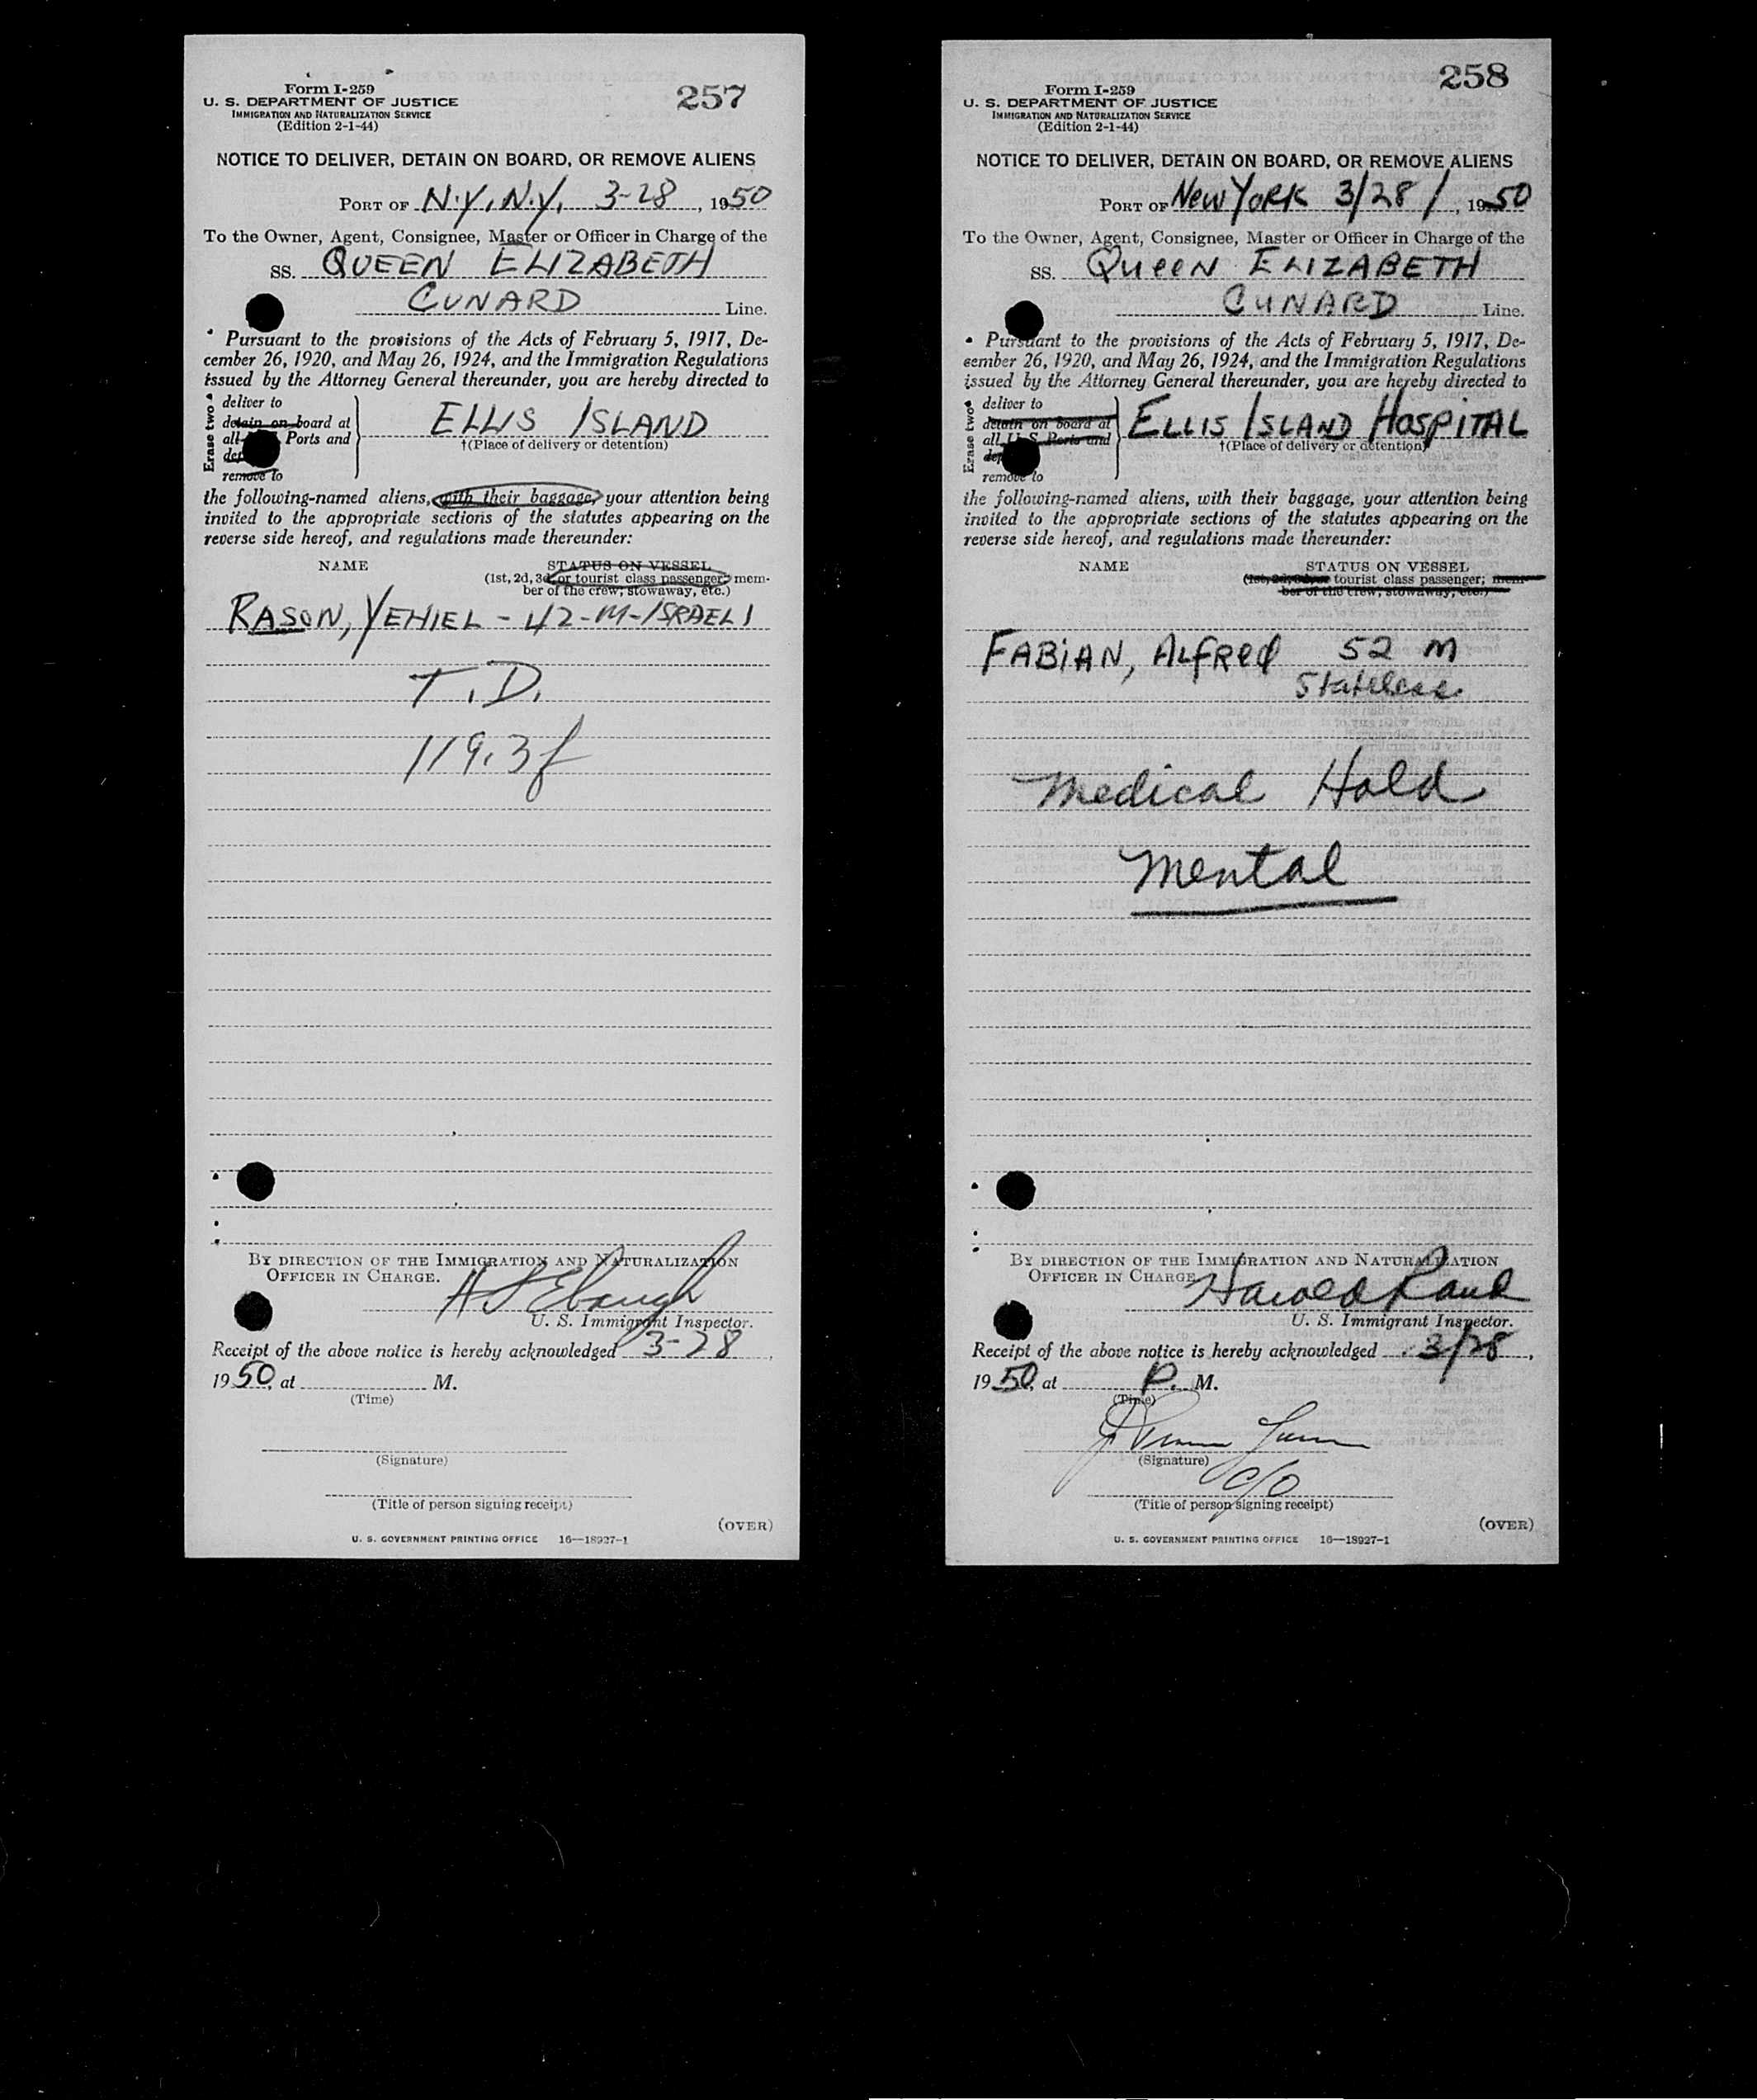 257
Form I-259
U. S. DEPARTMENT OF JUSTICE
IMMIGRATION AND NATURALIZATION SERVICE
(Edition 2-1-44)
NOTICE TO DELIVER, DETAIN ON BOARD, OR REMOVE ALIENS
PORT OF N.Y., N.Y. 3-28, 1950
To the Owner, Agent, Consignee, Master or Officer in Charge of the
SS. QUEEN ELIZABETH
CUNARD Line.
Pursuant to the provisions of the Acts of February 5, 1917, De-
cember 26, 1920, and May 26, 1924, and the Immigration Regulations
issued by the Attorney General thereunder, you are hereby directed to
Erase two
deliver to
detain on board at
all Ports and
remove to
ELLIS ISLAND
†(Place of delivery or detention)
the following-named aliens, with their baggage, your attention being
invited to the appropriate sections of the statutes appearing on the
reverse side hereof, and regulations made thereunder:
NAME STATUS ON VESSEL
(1st, 2d, 3d, or tourist class passenger; mem-
ber of the crew; stowaway, etc.)
RASON, YEHIEL - 42-M-ISRAELI
T.D.
119.3f
BY DIRECTION OF THE IMMIGRATION AND NATURALIZATION
OFFICER IN CHARGE.
U. S. Immigrant Inspector.
Receipt of the above notice is hereby acknowledged 3-28,
1950, at M.
(Time)
(Signature)
(Title of person signing receipt)
(OVER)
U. S. GOVERNMENT PRINTING OFFICE 16—18927-1
258
Form I-259
U. S. DEPARTMENT OF JUSTICE
IMMIGRATION AND NATURALIZATION SERVICE
(Edition 2-1-44)
NOTICE TO DELIVER, DETAIN ON BOARD, OR REMOVE ALIENS
PORT OF New York 3/28/, 1950
To the Owner, Agent, Consignee, Master or Officer in Charge of the
SS. Queen ELIZABETH
CUNARD Line.
Pursuant to the provisions of the Acts of February 5, 1917, De-
cember 26, 1920, and May 26, 1924, and the Immigration Regulations
issued by the Attorney General thereunder, you are hereby directed to
Erase two
deliver to
detain on board at
all U. S. Ports and
remove to
ELLIS ISLAND HOSPITAL
†(Place of delivery or detention)
the following-named aliens, with their baggage, your attention being
invited to the appropriate sections of the statutes appearing on the
reverse side hereof, and regulations made thereunder:
NAME STATUS ON VESSEL
(1st, 2d, 3d, or tourist class passenger; mem-
ber of the crew; stowaway, etc.)
FABIAN, Alfred 52 M
Stateless
Medical Hold
Mental
BY DIRECTION OF THE IMMIGRATION AND NATURALIZATION
OFFICER IN CHARGE.
Harold
U. S. Immigrant Inspector.
Receipt of the above notice is hereby acknowledged 3/28,
1950, at P. M.
(Time)
(Signature)
c/o
(Title of person signing receipt)
(OVER)
U. S. GOVERNMENT PRINTING OFFICE 16—18927-1